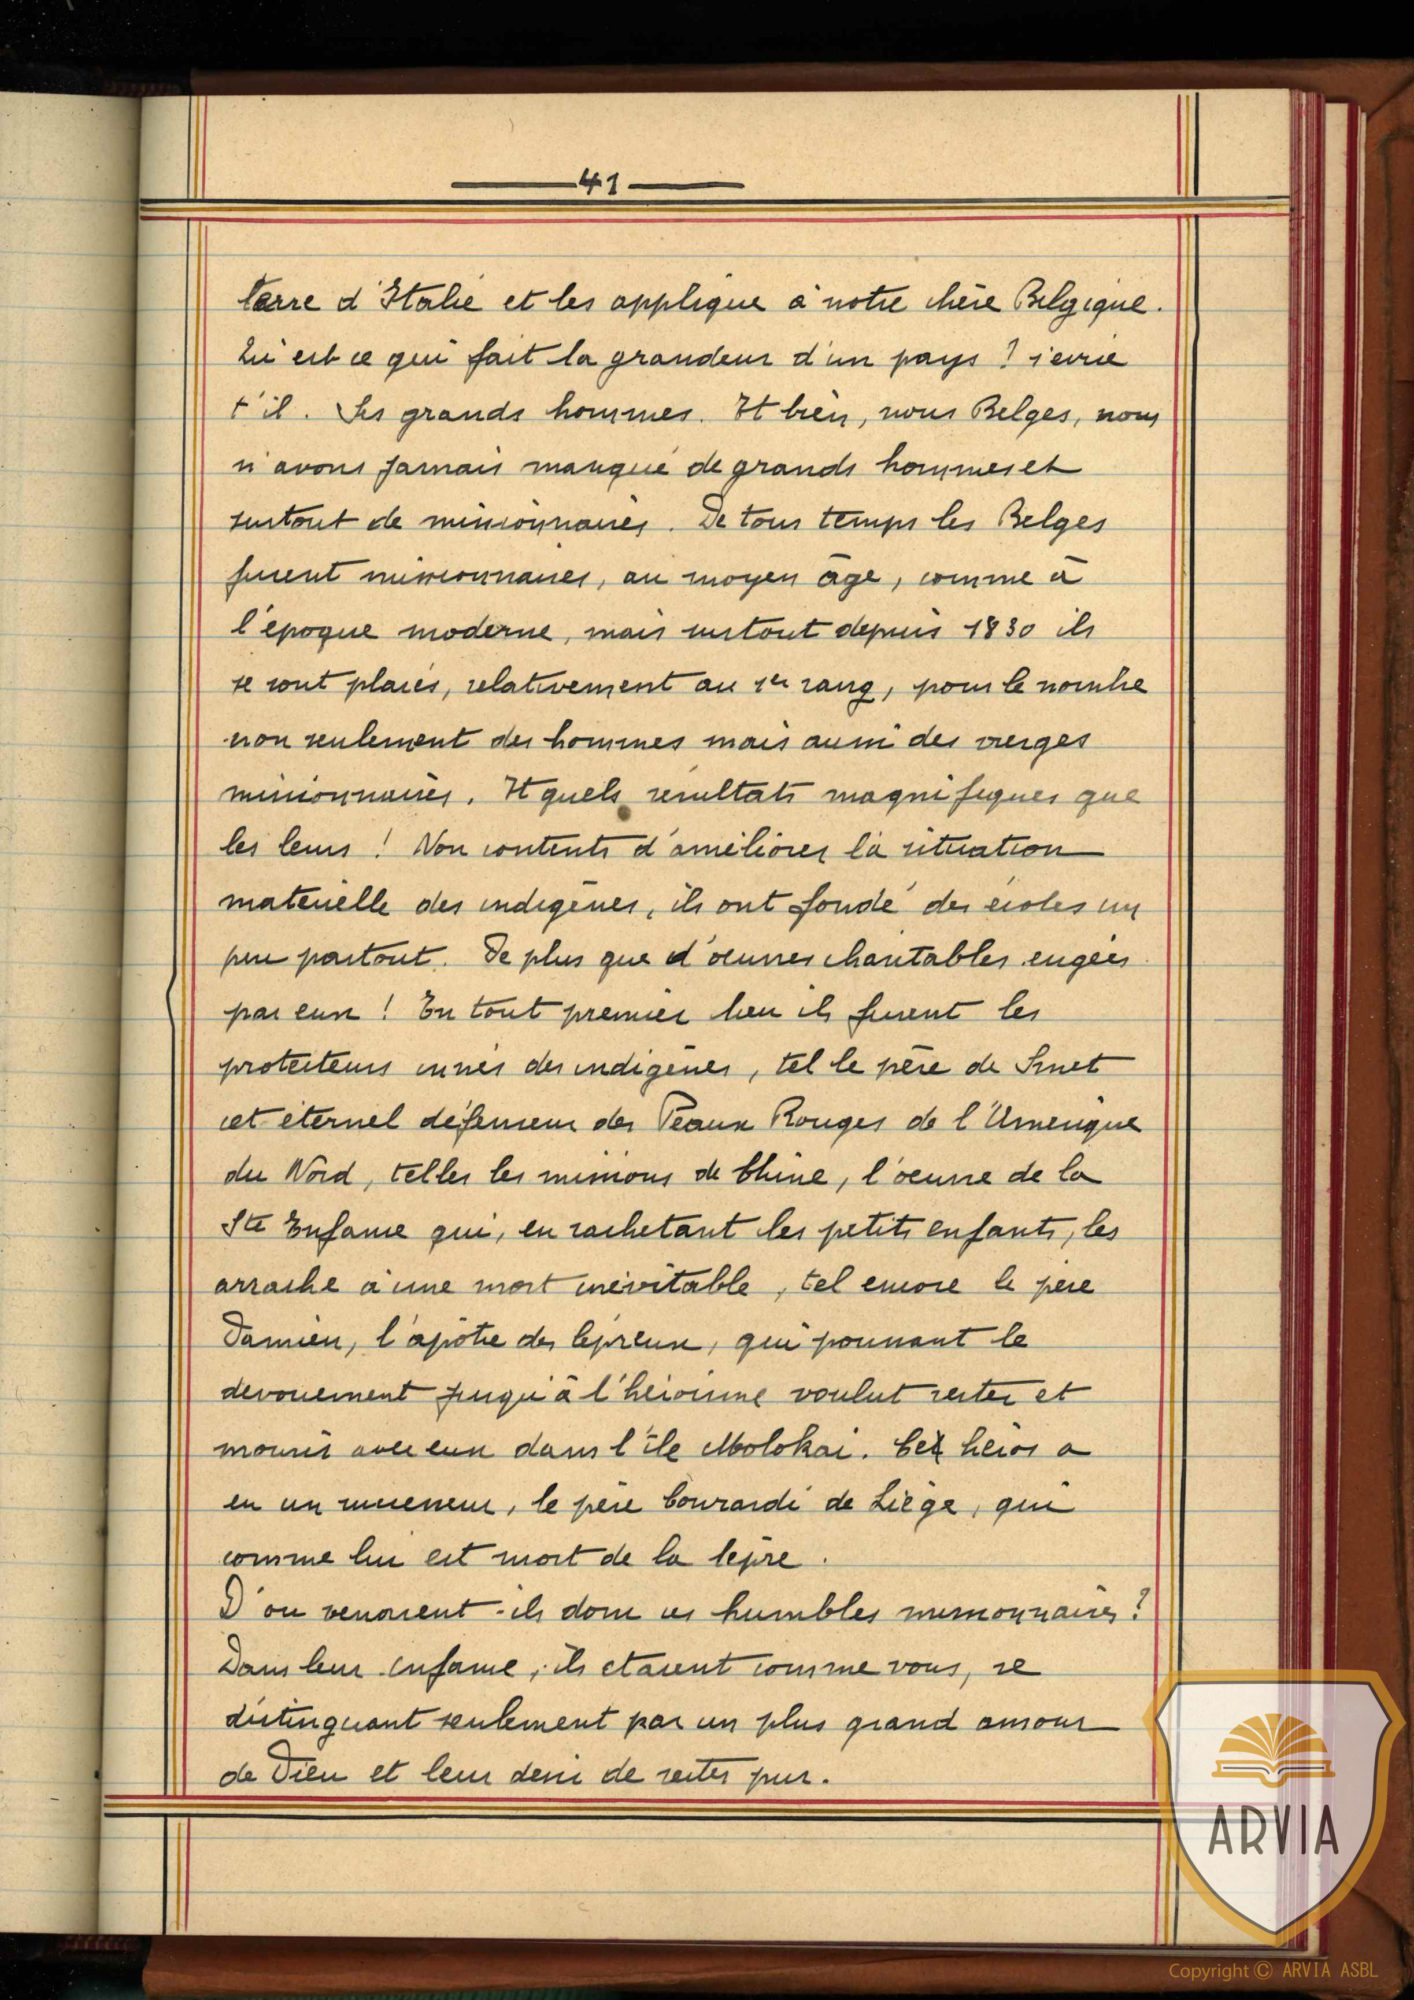 41
terre d'Italie et les applique à notre chère Belgique.
Qu'est ce qui fait la grandeur d'un pays ? s'ecrie
t'il. Ses grands hommes. Et bien, nous Belges, nous
n'avons jamais manqué de grands hommes et
surtout de missionnaires. De tous temps les Belges
furent missionnaires, au moyen âge, comme à
l'époque moderne, mais surtout depuis 1830 ils
se sont placés, relativement au 1er rang, pour le nombre
non seulement des hommes mais aussi des vierges
missionnaires. Et quels résultats magnifiques que
les leurs ! Non contents d'améliorer la situation
materielle des indigènes, ils ont fondé des écoles un
peu partout. De plus que d'oeuvres charitables erigées
par eux ! En tout premier lieu ils furent les
protecteurs innés des indigènes, tel le père de Smet
cet éternel défenseur des Peaux Rouges de l'Amerique
du Nord, telles les missions de Chine, l'oeuvre de la
Ste Enfance qui, en rachetant les petits enfants, les
arrache à une mort inévitable, tel encore le père
Damien, l'apôtre des lépreux, qui poussant le
devouement jusqu'à l'héroisme voulut rester et
mourir avec eux dans l'île Molokai. Cet héros a
eu un successeur, le père Conrardi de Liège, qui
comme lui est mort de la lèpre.
D'ou venaient-ils donc ces humbles missionnaires ?
Dans leur enfance, ils etaient comme vous, se
distinguant seulement par un plus grand amour
de Dieu et leur desir de rester pur.
ARVIA
Copyright © ARVIA ASBL